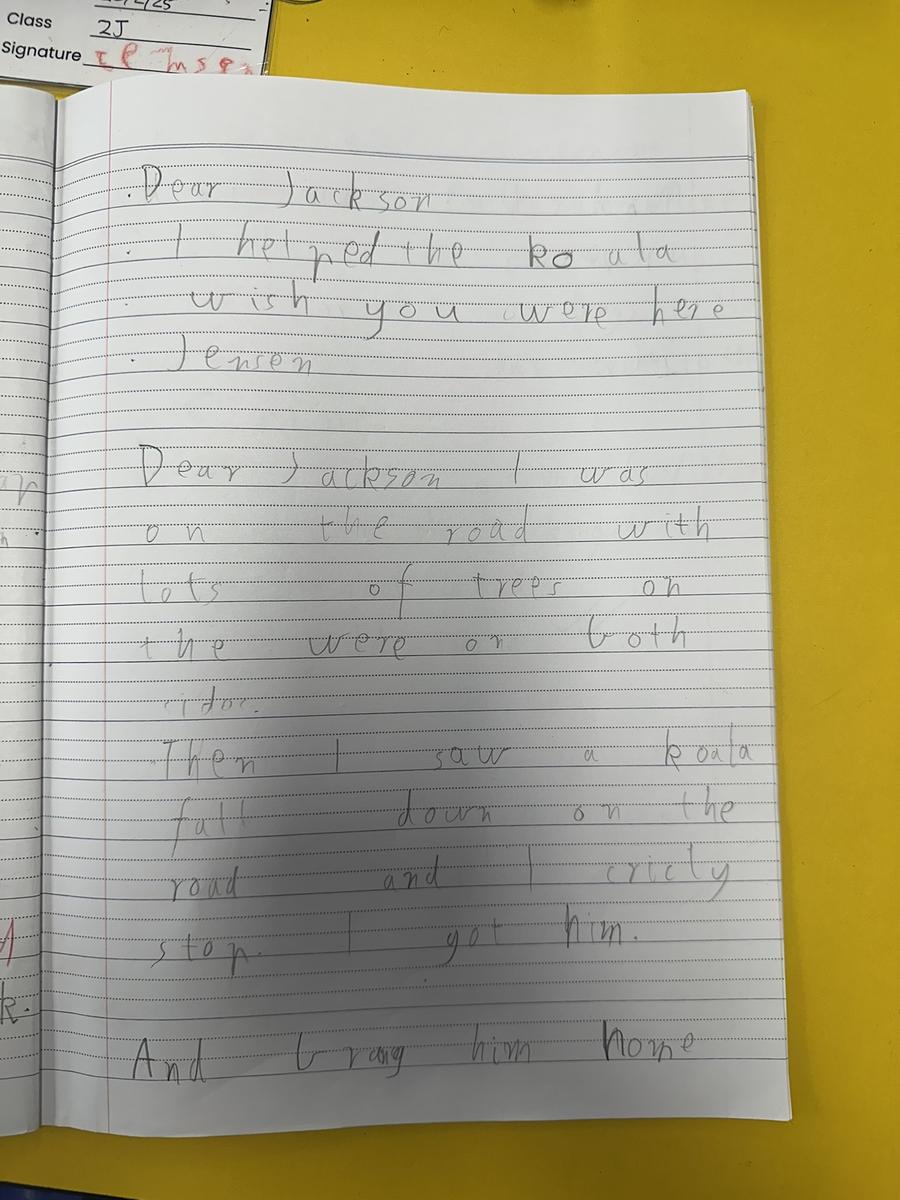 Class 2J
Signature
Dear Jackson
I helped the koala
wish you were here
Jensen
Dear Jackson I was
on the road with
lots of trees on
the were on both
Then I saw a koala
fall down on the
road and I cricly
stop. I got him.
And brang him home
k.